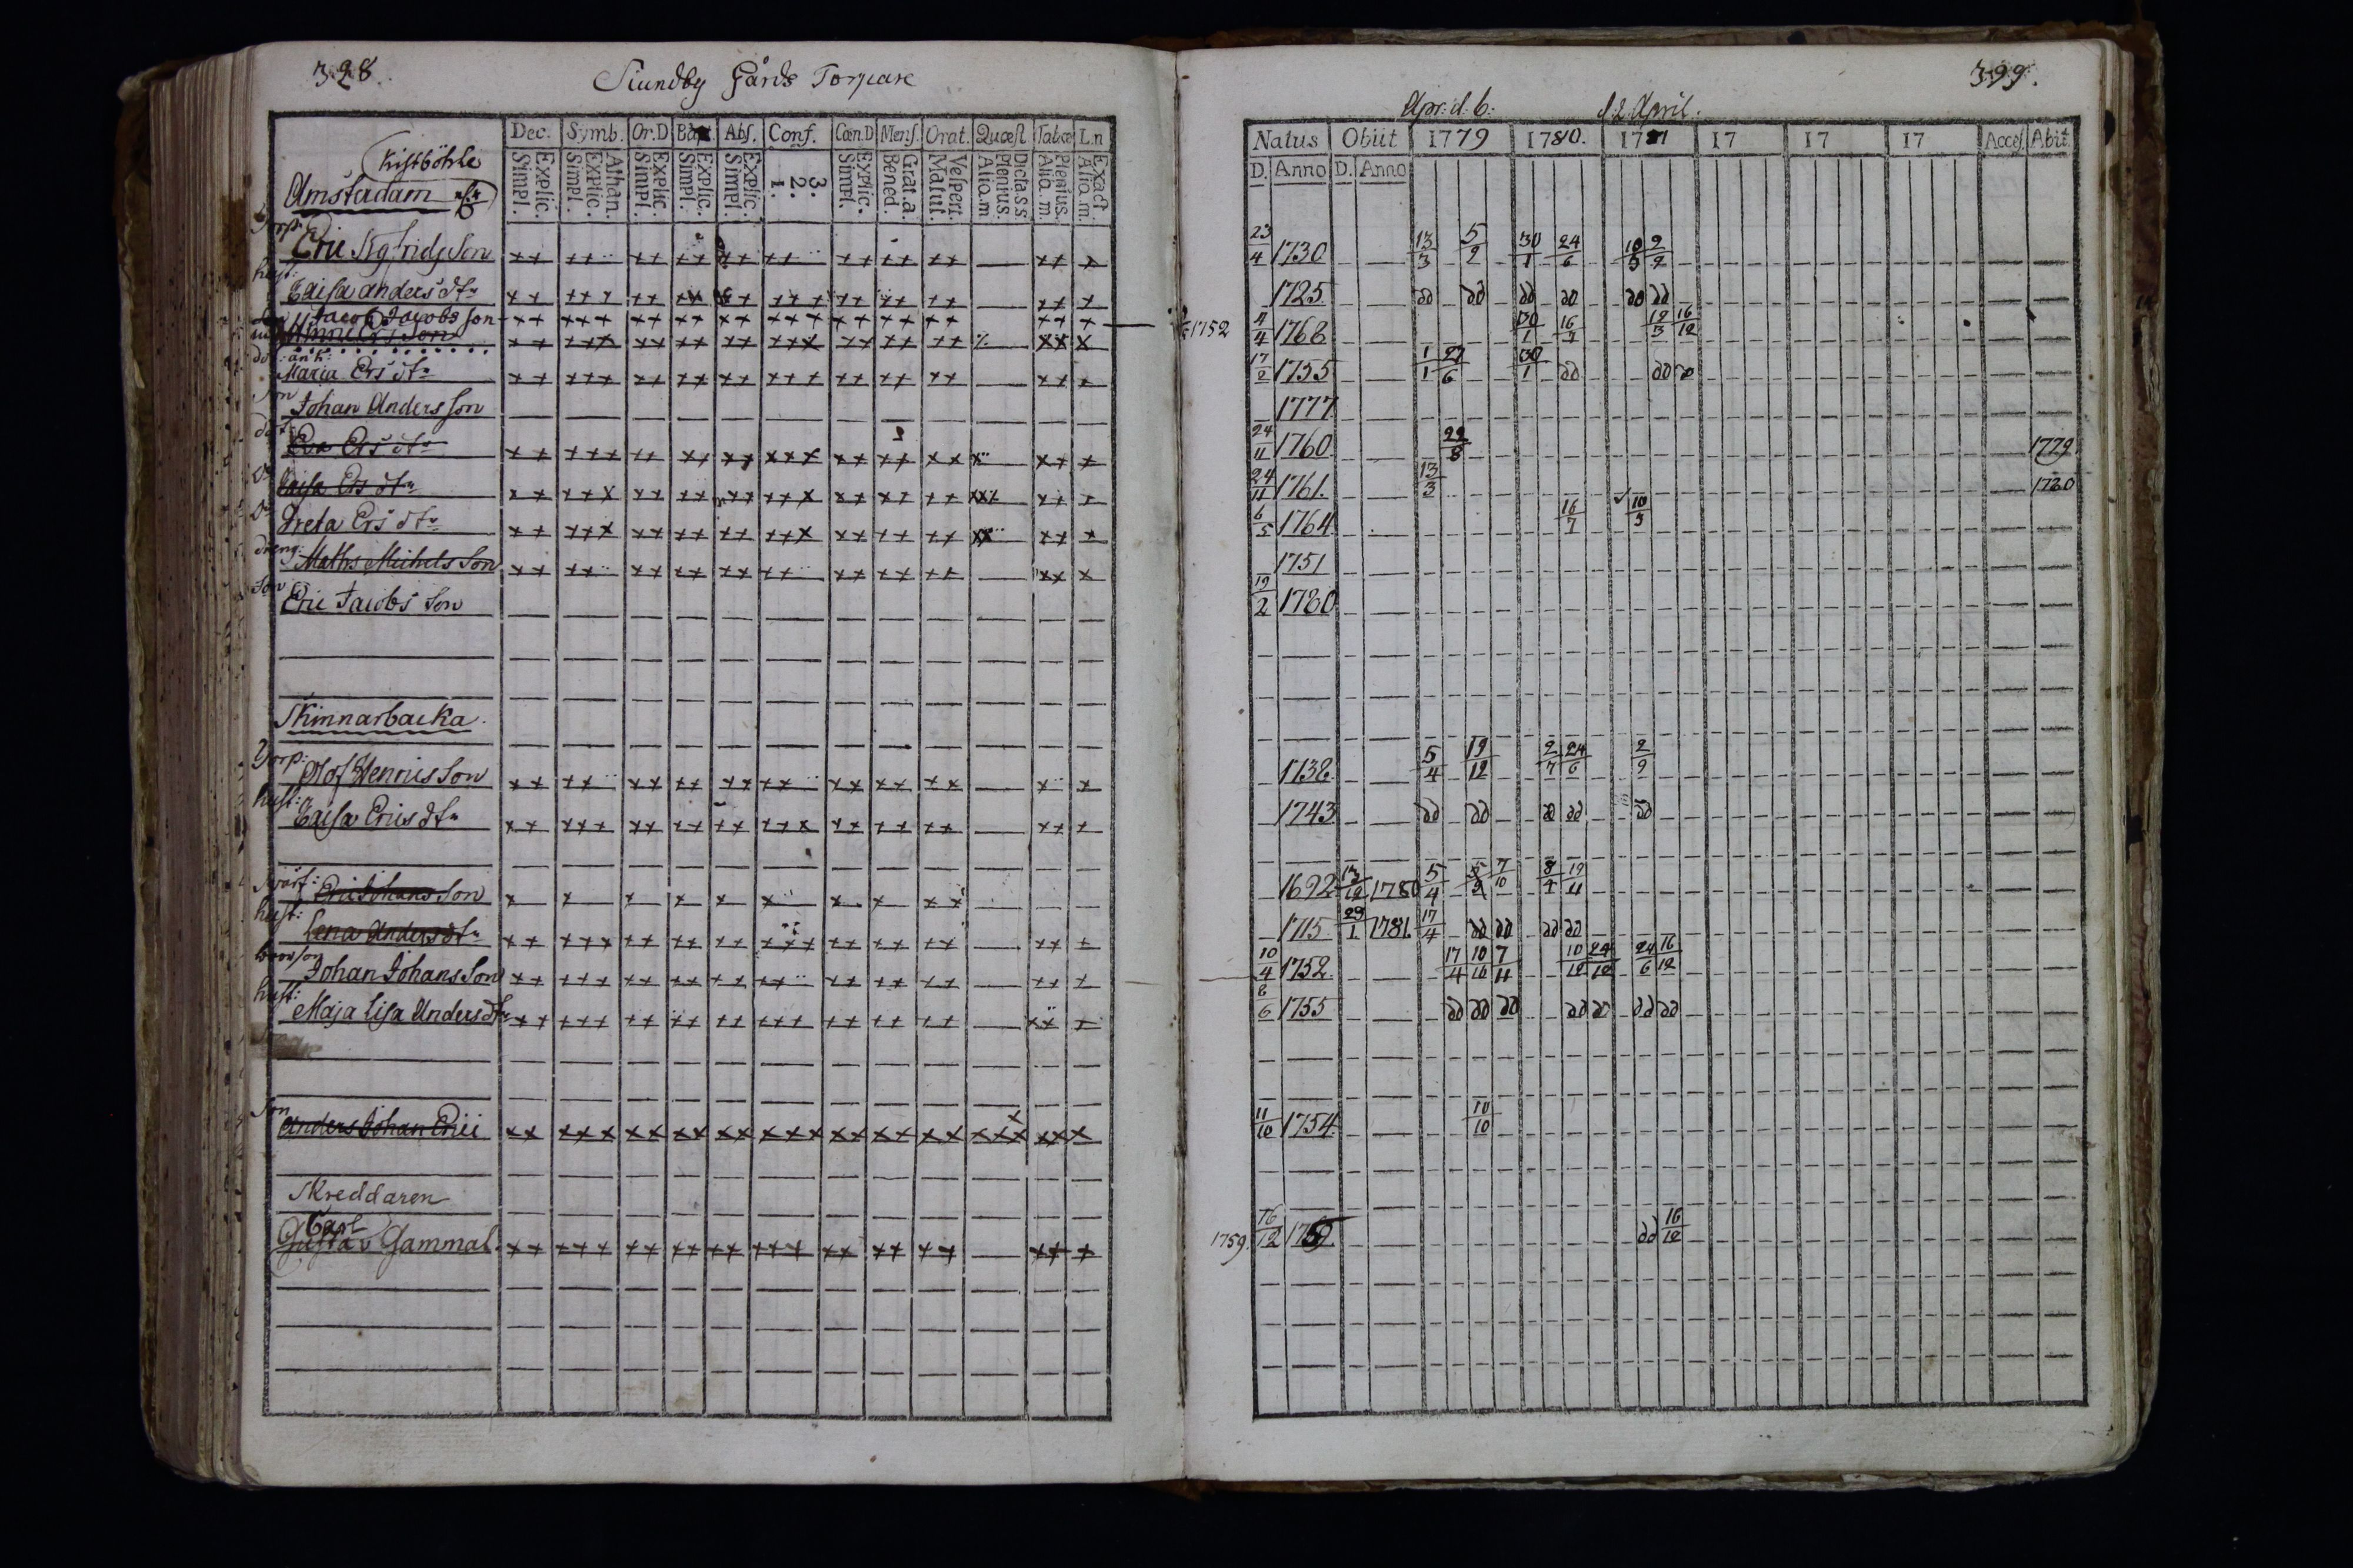 328.
Siundby Gårds Torpare
399.
Apr: d. 6:
d. 2 April.
Dec. Symb. Or.D Bapt. Abs. Conf. Cœn.D Mens. Orat. Quæst Tabœ L.n
Explic. Simpl. Athan. Explic. Simpl. Explic. Simpl. Explic. Simpl. Explic. Simpl. 3. 2. 1. Explic. Simpl. Grat.a. Bened. Vespert. Matut. Dicta.s.s. Plenius. Alio.m. Plenius. Alio.m. Exact. Alio.m.
Natus Obiit 1779 1780. 1781 17 17 17 Acces. Abit.
D. Anno D. Anno
Kistböhle
Amstadam
Torp:
Eric Sigfridsson 23/4 1730 13/3 5/2 30/1 24/6 10/3 9/2
hust:
Caisa anders dtr 1725 dd dd dd dd dd dd
Jacob Jacobs son 1752
4/4 1768 30/1 16/7 12/3 16/12
dot: änk:
Maria Ers dtr 17/2 1755 1/1 27/6 30/1 dd dd
Son
Johan Andersson 1777
dot:
Eva Ers dtr 24/11 1760 22/8 1779
Do
Caisa Ers dtr 24/11 1761. 13/3 1780
Do
Greta Ers dtr 6/5 1764 16/7 10/3
dreng:
Maths Michels Son 1751
Son
Eric Jacobs Son 19/2 1780
Skinnarbacka.
Torp:
Olof Henrics Son 1738 5/4 19/12 2/7 24/6 2/9
hust:
Caisa Erics dtr 1743 dd dd dd dd dd
Svärf:
Eric Johans Son 1692 13/12 1780 5/4 7/10 8/4 19/11
hust:
Lena Anders dtr 1715 29/1 1781. 17/4 dd dd dd dd
Johan Johans Son 10/4 1752. 17/4 10/10 7/11 10/12 24/12 24/6 16/12
hust:
Maja Lisa Anders dtr 8/6 1755 dd dd dd dd dd dd dd
Son
Anders Johan Erici 11/10 1754 10/10
Skreddaren
Carl
Gustav Gammal. 1759. 16/12 1759 dd 16/12